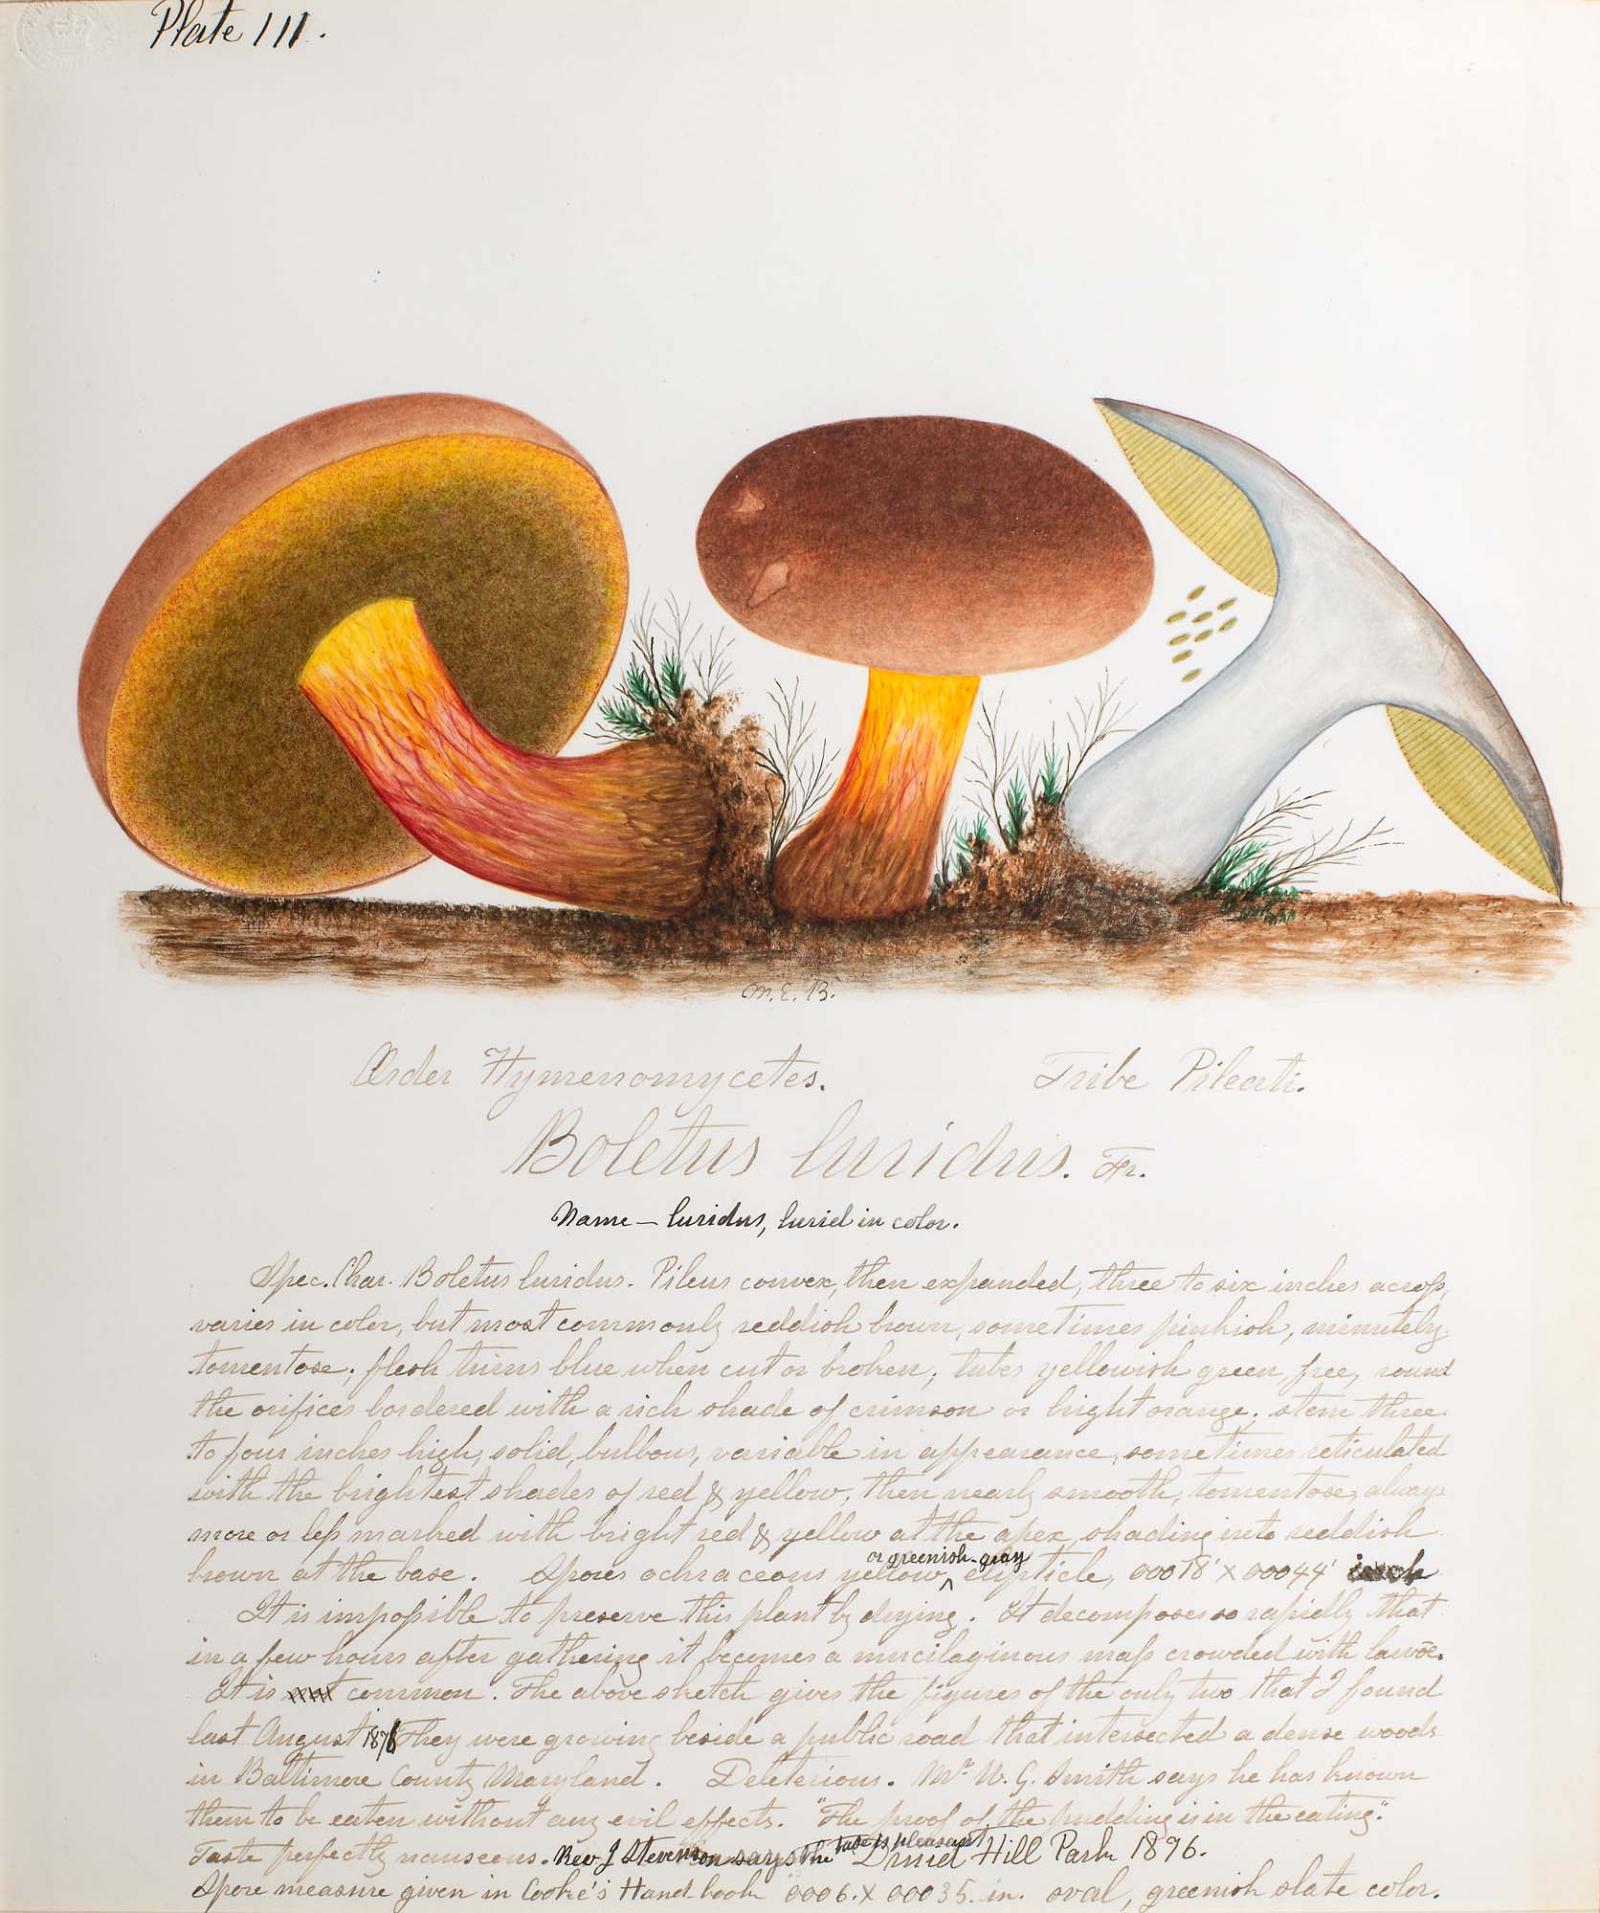 Plate III.
M. E. B.
Order Hymenomycetes. Tribe Pileati.
Boletus luridus. Fr.
Name — luridus, lurid in color.
Spec. Char. Boletus luridus. Pileus convex, then expanded, three to six inches across,
varies in color, but most commonly reddish brown, sometimes pinkish, minutely
tomentose; flesh turns blue when cut or broken; tubes yellowish green, free, round
the orifices bordered with a rich shade of crimson or bright orange; stem three
to four inches high, solid, bulbous, variable in appearance, sometimes reticulated
with the brightest shades of red & yellow, then nearly smooth, tomentose, always
more or less marked with bright red & yellow at the apex, shading into reddish
or greenish-gray
brown at the base. Spores ochraceous yellow, ^ elipticle, 00078' X 00044' inch
It is impossible to preserve this plant by drying. It decomposes so rapidly that
in a few hours after gathering it becomes a mucilaginous mass crowded with lavœ.
It is not common. The above sketch gives the figures of the only two that I found
last August 1876 They were growing beside a public road that intersected a dense woods
in Baltimore County Maryland. Deleterious. Mr W. G. Smith says he has known
them to be eaten without any evil effects. "The proof of the pudding is in the eating."
taste is pleasant
Taste perfectly nauseous. Rev J Stevenson says the Druid Hill Park 1896.
Spore measure given in Cooke's Hand book 0006. X 00035. in. oval, greenish slate color.